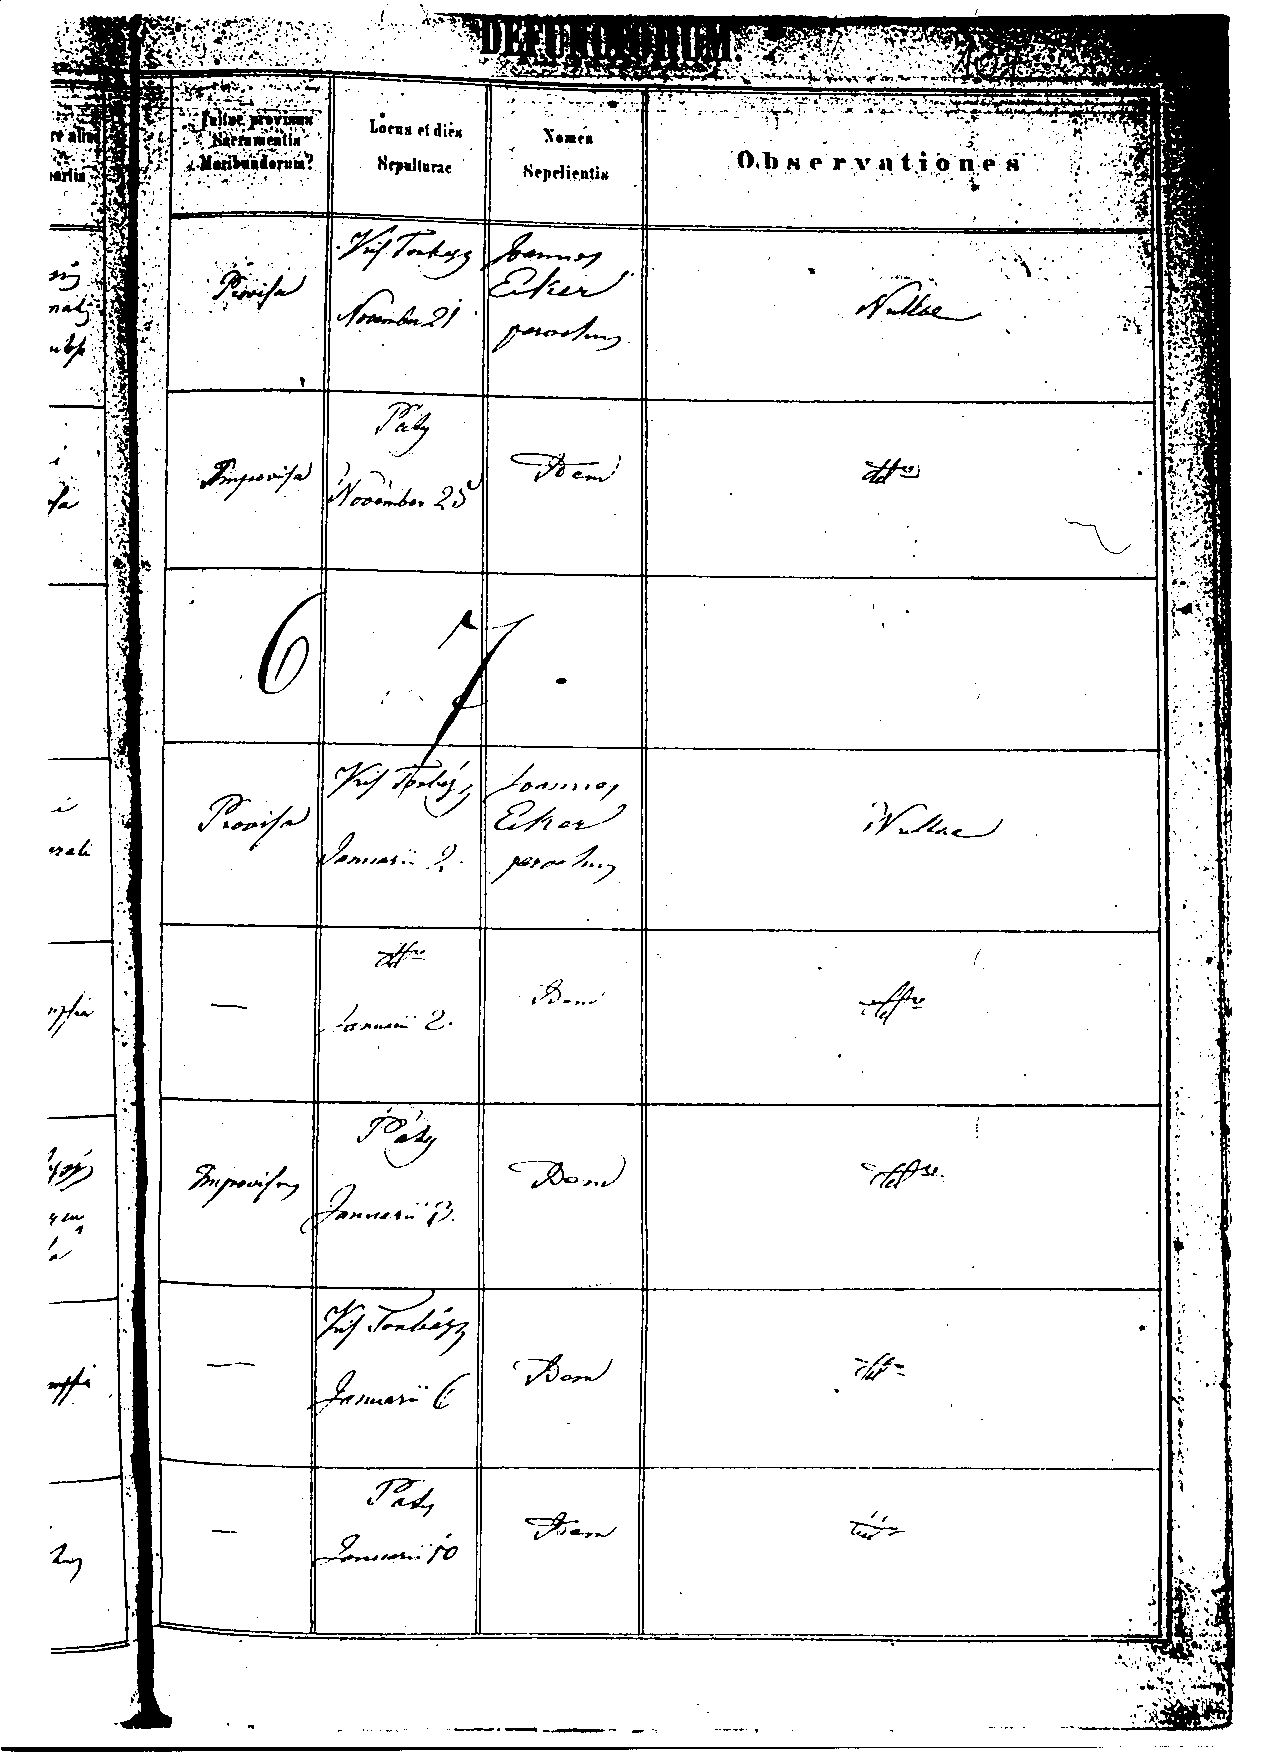 DEFUNCTORUM.
Fuitne provisus
Sacramentis
Moribundorum?
Locus et dies
Sepulturae
Nomen
Sepelientis
Observationes
Provisa
Kis Torbágy
November 21
Joannes
Eiker
parochus
Nullae
Improvisa
Páty
November 25
Idem
dtto
6 7.
Provisa
Kis Torbágy
Januarii 2.
Joannes
Eiker
parochus
Nullae
—
dtto
Januarii 2.
Idem
dtto
Improvisus
Páty
Januarii 3.
Idem
dtto
—
Kis Torbágy
Januarii 6
Idem
dtto
—
Páty
Januarii 10
Idem
dtto